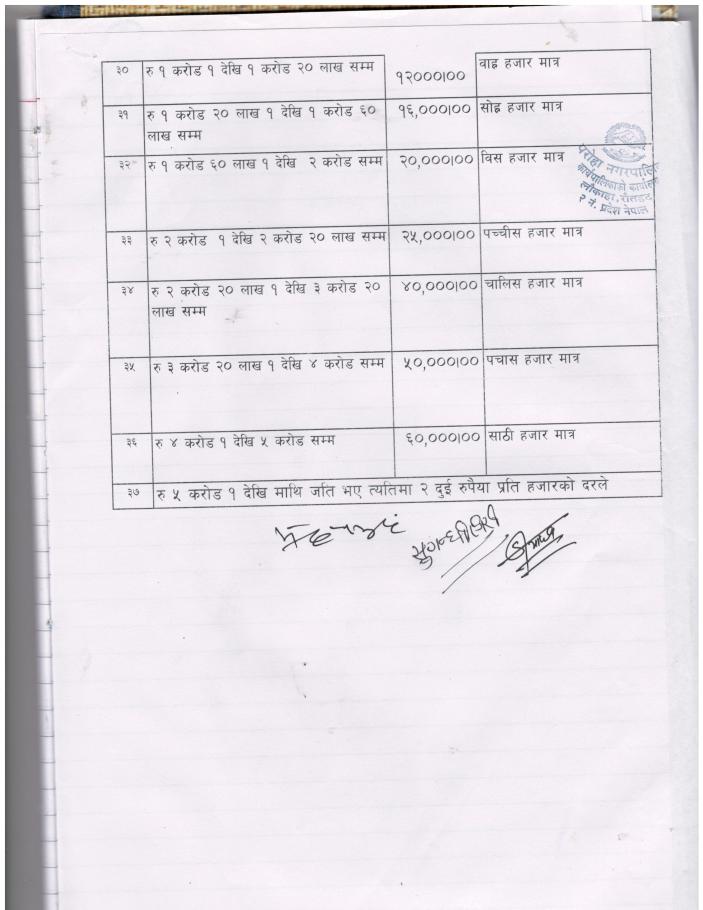 ३० रु १ करोड १ देखि १ करोड २० लाख सम्म १२०००।०० वाह्र हजार मात्र
३१ रु १ करोड २० लाख १ देखि १ करोड ६० १६,०००।०० सोह्र हजार मात्र
लाख सम्म
३२ रु १ करोड ६० लाख १ देखि २ करोड सम्म २०,०००।०० विस हजार मात्र
परोहा नगरपालि
कार्यपालिकाको कार्याल
रौतहट
२ नं. प्रदेश नेपाल
३३ रु २ करोड १ देखि २ करोड २० लाख सम्म २५,०००।०० पच्चीस हजार मात्र
३४ रु २ करोड २० लाख १ देखि ३ करोड २० ४०,०००।०० चालिस हजार मात्र
लाख सम्म
३५ रु ३ करोड २० लाख १ देखि ४ करोड सम्म ५०,०००।०० पचास हजार मात्र
३६ रु ४ करोड १ देखि ५ करोड सम्म ६०,०००।०० साठी हजार मात्र
३७ रु ५ करोड १ देखि माथि जति भए त्यतिमा २ दुई रुपैया प्रति हजारको दरले